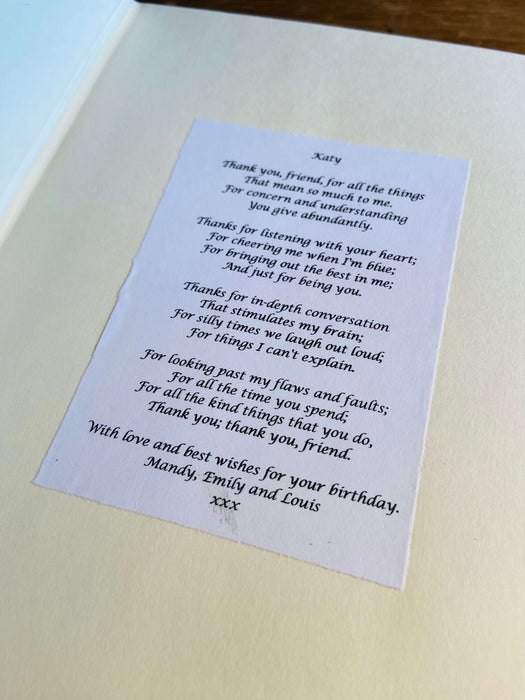 Katy
Thank you, friend, for all the things
That mean so much to me.
For concern and understanding
You give abundantly.
Thanks for listening with your heart;
For cheering me when I'm blue;
For bringing out the best in me;
And just for being you.
Thanks for in-depth conversation
That stimulates my brain;
For silly times we laugh out loud;
For things I can't explain.
For looking past my flaws and faults;
For all the time you spend;
For all the kind things that you do,
Thank you; thank you, friend.
With love and best wishes for your birthday.
Mandy, Emily and Louis
xxx